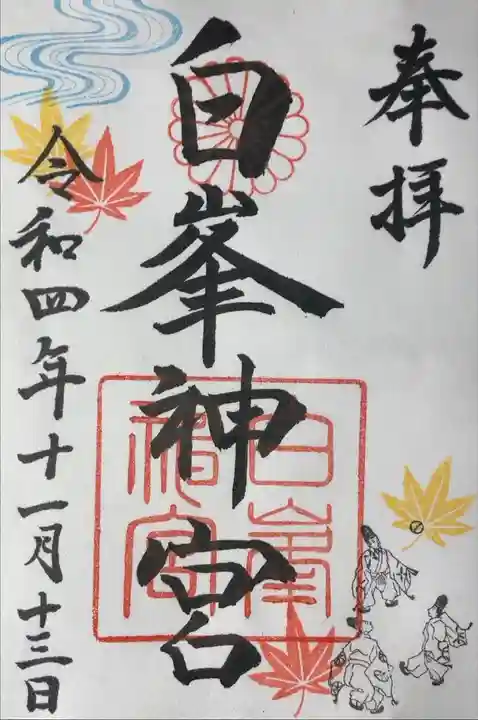 奉拝
白峯神宮
白峯神宮
令和四年十一月十三日